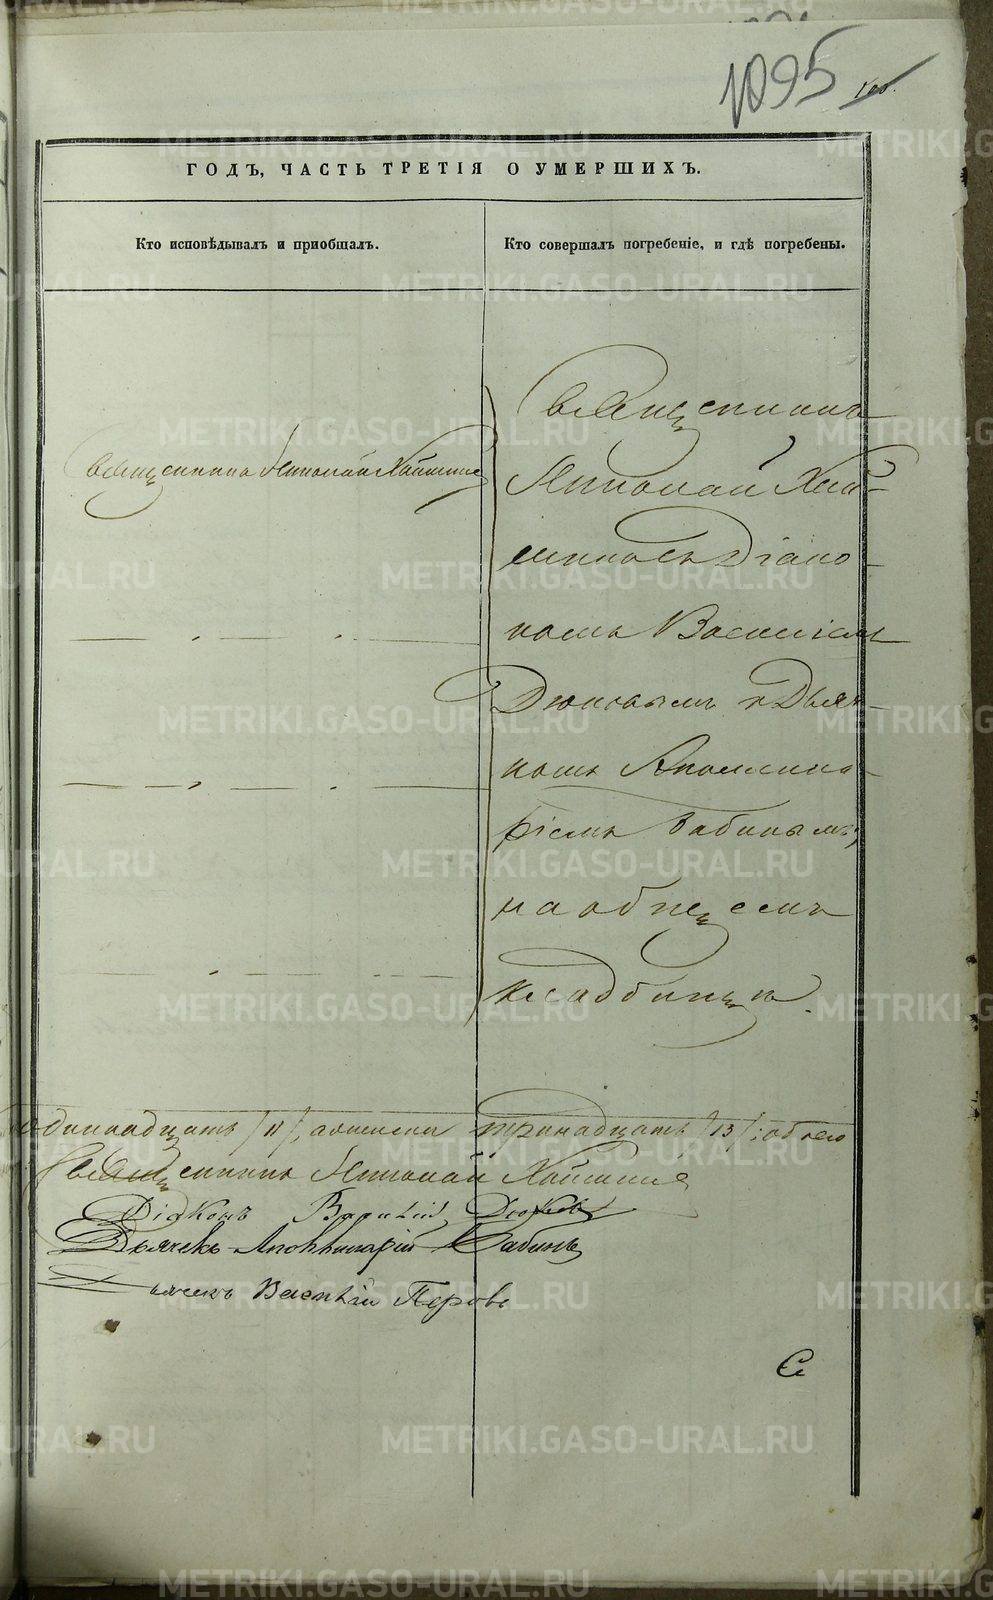 1095
ГОДЪ, ЧАСТЬ ТРЕТІЯ О УМЕРШИХЪ.
Кто исповѣдывалъ и приобщалъ.
Кто совершалъ погребеніе, и гдѣ погребены.
Священникъ Николай
Священникъ
Николай
съ Діако-
номъ Василіемъ
Дюковымъ и Дьяч-
комъ Аполлина-
ріемъ Бабинымъ,
на общемъ
кладбищѣ.
одиннадцать /11/, тринадцать /13/ : обоего
Священникъ Николай
Діаконъ Василій Дюковъ
Дьячекъ Аполлинарій Бабинъ
Дьячекъ Василій Перовъ
METRIKI.GASO-URAL.RU